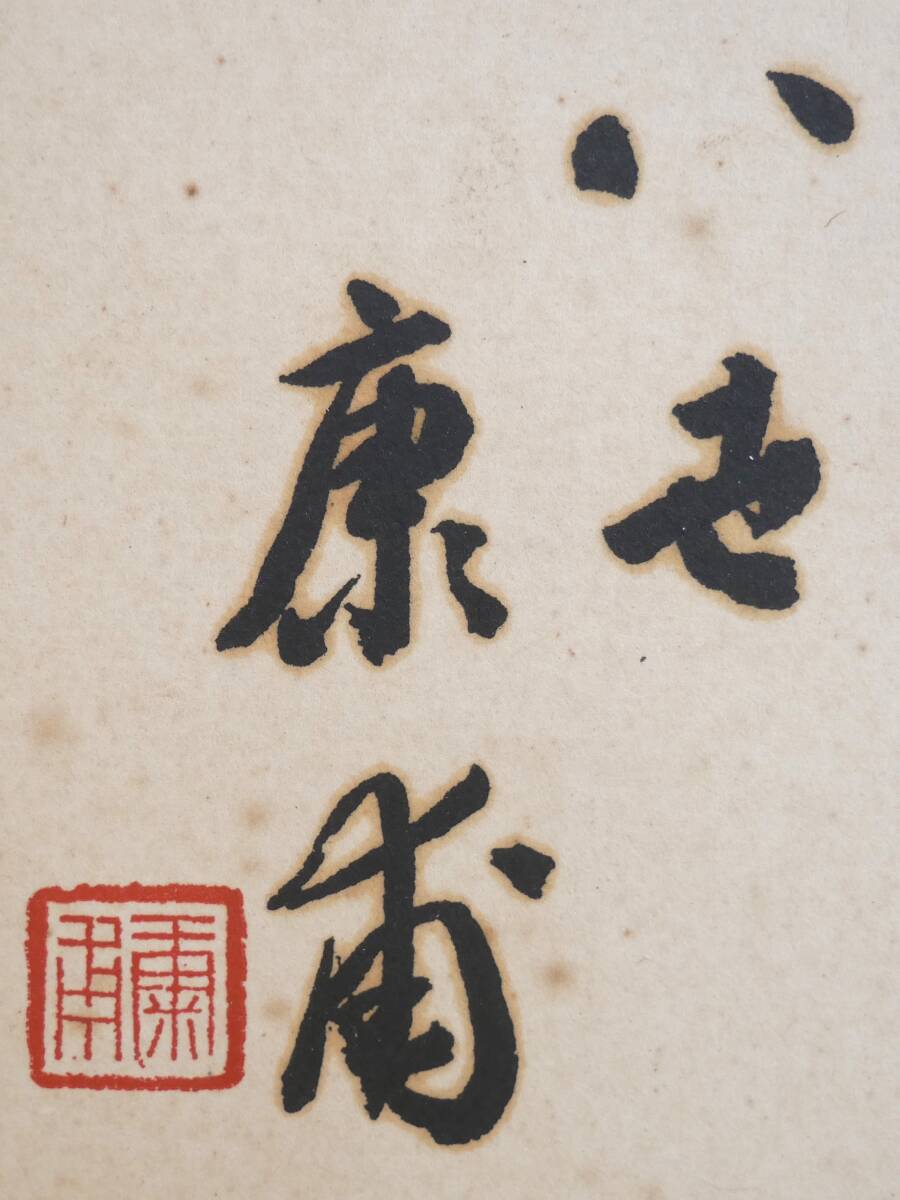 八世
康甫
康甫